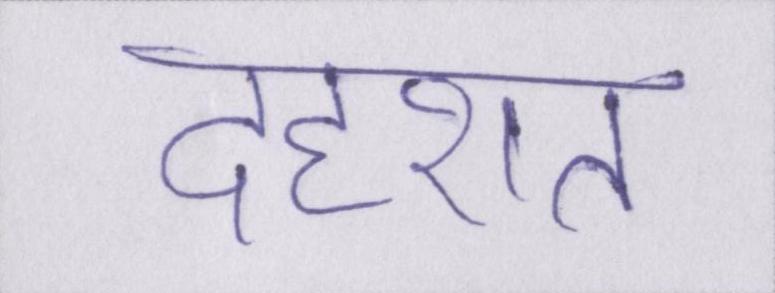 दहशत